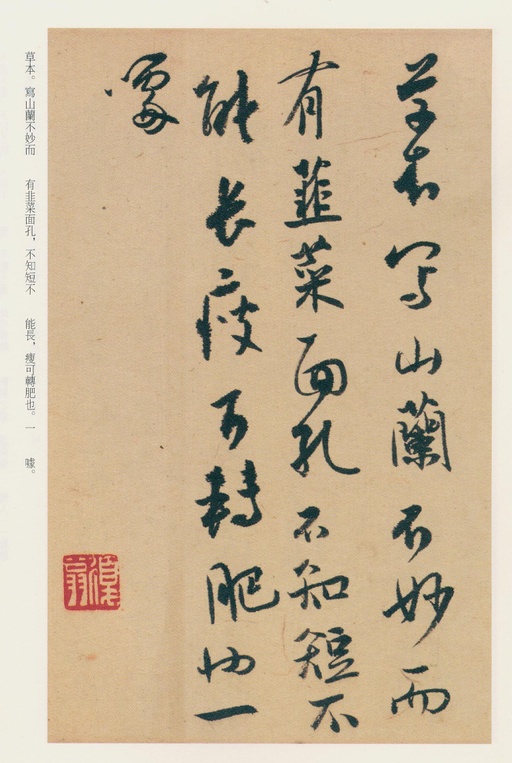 草本寫山蘭不妙而
有韮菜面孔不知短不
能長瘦可轉肥也一
噱
草本。寫山蘭不妙而　有韭菜面孔，不知短不　能長，瘦可轉肥也。一　噱。